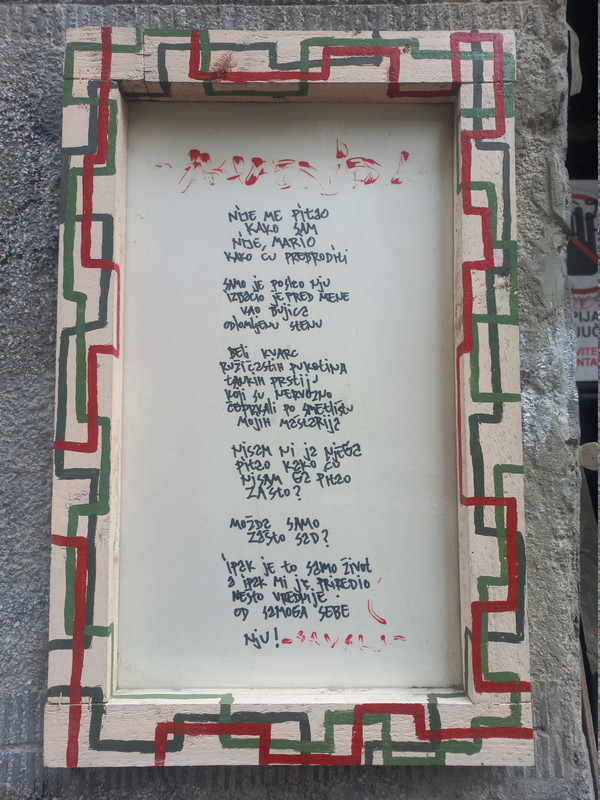 NIJE ME PITAO
KAKO SAM
NIJE, MARIO
KAKO ĆU PREBRODITI
SAMO JE POSLAO NJU
IZBACIO JE PRED MENE
KAO BUJICA
ODLOMLJENU STENU
BELI KVARC
RUŽIČASTIH PUKOTINA
TANKIH PRSTIJU
KOJI SU NERVOZNO
ČEPRKALI PO SMETLIŠTU
MOJIH MAŠTARIJA
NISAM NI JA NJEGA
PITAO KAKO ĆU
NISAM GA PITAO
ZAŠTO?
MOŽDA SAMO
ZAŠTO SAD?
IPAK JE TO SAMO ŽIVOT
A IPAK MI JE PRIREDIO
NEŠTO VREDNIJE
OD SAMOGA SEBE
NJU!